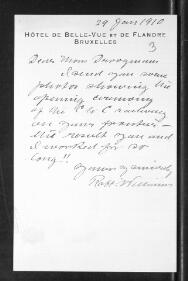 29 Jan 1910
HÔTEL DE BELLE-VUE ET DE FLANDRE
BRUXELLES
3
Dear Mon
I send you some
photos showing the
opening ceremony
of the C to C railway
on your frontier –
the result you and
I worked for so
long!!
Yours sincerely
Robt Williams